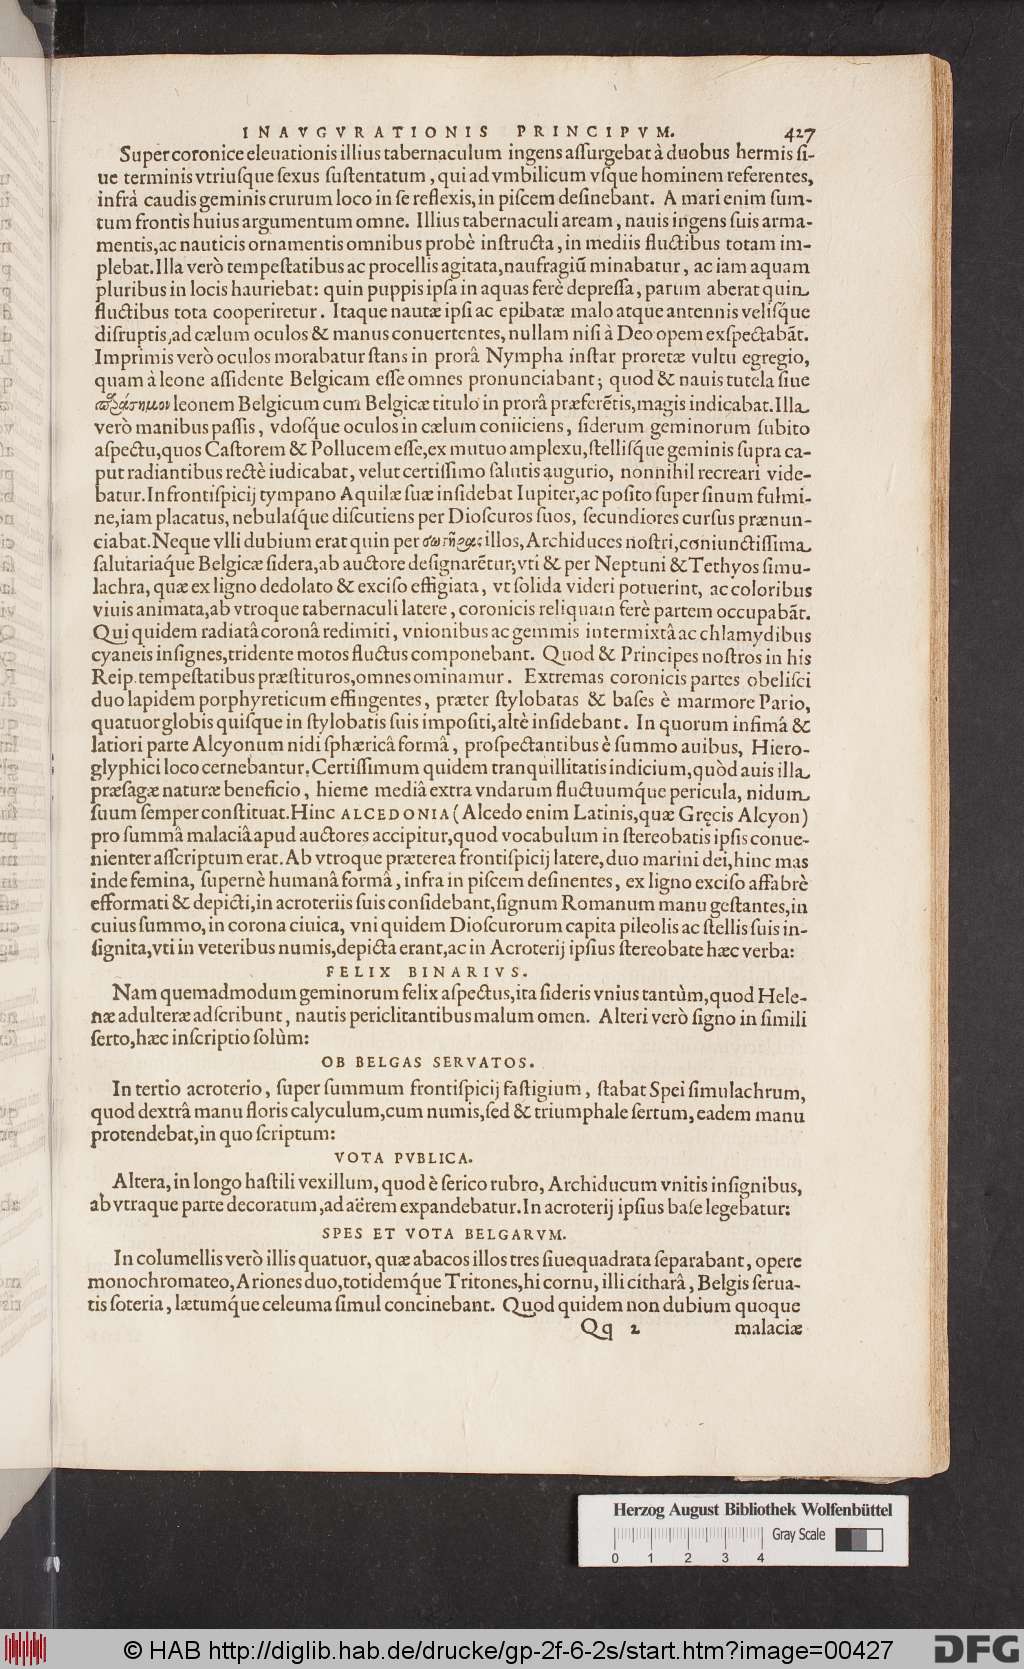 INAVGVRATIONIS PRINCIPVM. 427
Super coronice eleuationis illius tabernaculum ingens assurgebat à duobus hermis si-
ue terminis vtriusque sexus sustentatum, qui ad vmbilicum vsque hominem referentes,
infrà caudis geminis crurum loco in se reflexis, in piscem desinebant. A mari enim sum-
tum frontis huius argumentum omne. Illius tabernaculi aream, nauis ingens suis arma-
mentis, ac nauticis ornamentis omnibus probè instructa, in mediis fluctibus totam im-
plebat. Illa verò tempestatibus ac procellis agitata, naufragiũ minabatur, ac iam aquam
pluribus in locis hauriebat: quin puppis ipsa in aquas ferè depressa, parum aberat quin
fluctibus tota cooperiretur. Itaque nautæ ipsi ac epibatæ malo atque antennis velisq́ue
disruptis, ad cælum oculos & manus conuertentes, nullam nisi à Deo opem exspectabãt.
Imprimis verò oculos morabatur stans in prorâ Nympha instar proretæ vultu egregio,
quam à leone assidente Belgicam esse omnes pronunciabant; quod & nauis tutela siue
παράσημον leonem Belgicum cum Belgicæ titulo in prorâ præferẽtis, magis indicabat. Illa
verò manibus passis, vdosq́ue oculos in cælum coniiciens, siderum geminorum subito
aspectu, quos Castorem & Pollucem esse, ex mutuo amplexu, stellisq́ue geminis supra ca-
put radiantibus rectè iudicabat, velut certissimo salutis augurio, nonnihil recreari vide-
batur. In frontispicij tympano Aquilæ suæ insidebat Iupiter, ac posito super sinum fulmi-
ne, iam placatus, nebulasq́ue discutiens per Dioscuros suos, secundiores cursus prænun-
ciabat. Neque vlli dubium erat quin per σωτῆρας illos, Archiduces nostri, coniunctissima
salutariaq́ue Belgicæ sidera, ab auctore designarẽtur; vti & per Neptuni & Tethyos simu-
lachra, quæ ex ligno dedolato & exciso effigiata, vt solida videri potuerint, ac coloribus
viuis animata, ab vtroque tabernaculi latere, coronicis reliquam ferè partem occupabãt.
Qui quidem radiatâ coronâ redimiti, vnionibus ac gemmis intermixtâ ac chlamydibus
cyaneis insignes, tridente motos fluctus componebant. Quod & Principes nostros in his
Reip. tempestatibus præstituros, omnes ominamur. Extremas coronicis partes obelisci
duo lapidem porphyreticum effingentes, præter stylobatas & bases è marmore Pario,
quatuor globis quisque in stylobatis suis impositi, altè insidebant. In quorum infimâ &
latiori parte Alcyonum nidi sphæricâ formâ, prospectantibus è summo auibus, Hiero-
glyphici loco cernebantur. Certissimum quidem tranquillitatis indicium, quòd auis illa
præsagæ naturæ beneficio, hieme mediâ extra vndarum fluctuumq́ue pericula, nidum
suum semper constituat. Hinc ALCEDONIA (Alcedo enim Latinis, quæ Gręcis Alcyon)
pro summâ malaciâ apud auctores accipitur, quod vocabulum in stereobatis ipsis conue-
nienter asscriptum erat. Ab vtroque præterea frontispicij latere, duo marini dei, hinc mas
inde femina, supernè humanâ formâ, infra in piscem desinentes, ex ligno exciso affabrè
efformati & depicti, in acroteriis suis considebant, signum Romanum manu gestantes, in
cuius summo, in corona ciuica, vni quidem Dioscurorum capita pileolis ac stellis suis in-
signita, vti in veteribus numis, depicta erant, ac in Acroterij ipsius stereobate hæc verba:
FELIX BINARIVS.
Nam quemadmodum geminorum felix aspectus, ita sideris vnius tantùm, quod Hele-
næ adulteræ adscribunt, nautis periclitantibus malum omen. Alteri verò signo in simili
serto, hæc inscriptio solùm:
OB BELGAS SERVATOS.
In tertio acroterio, super summum frontispicij fastigium, stabat Spei simulachrum,
quod dextrâ manu floris calyculum, cum numis, sed & triumphale sertum, eadem manu
protendebat, in quo scriptum:
VOTA PVBLICA.
Altera, in longo hastili vexillum, quod è serico rubro, Archiducum vnitis insignibus,
ab vtraque parte decoratum, ad aërem expandebatur. In acroterij ipsius base legebatur:
SPES ET VOTA BELGARVM.
In columellis verò illis quatuor, quæ abacos illos tres siue quadrata separabant, opere
monochromateo, Ariones duo, totidemq́ue Tritones, hi cornu, illi citharâ, Belgis serua-
tis soteria, lætumq́ue celeuma simul concinebant. Quod quidem non dubium quoque
Qq 2 malaciæ
Herzog August Bibliothek Wolfenbüttel
Gray Scale
0 1 2 3 4
© HAB http://diglib.hab.de/drucke/gp-2f-6-2s/start.htm?image=00427
DFG